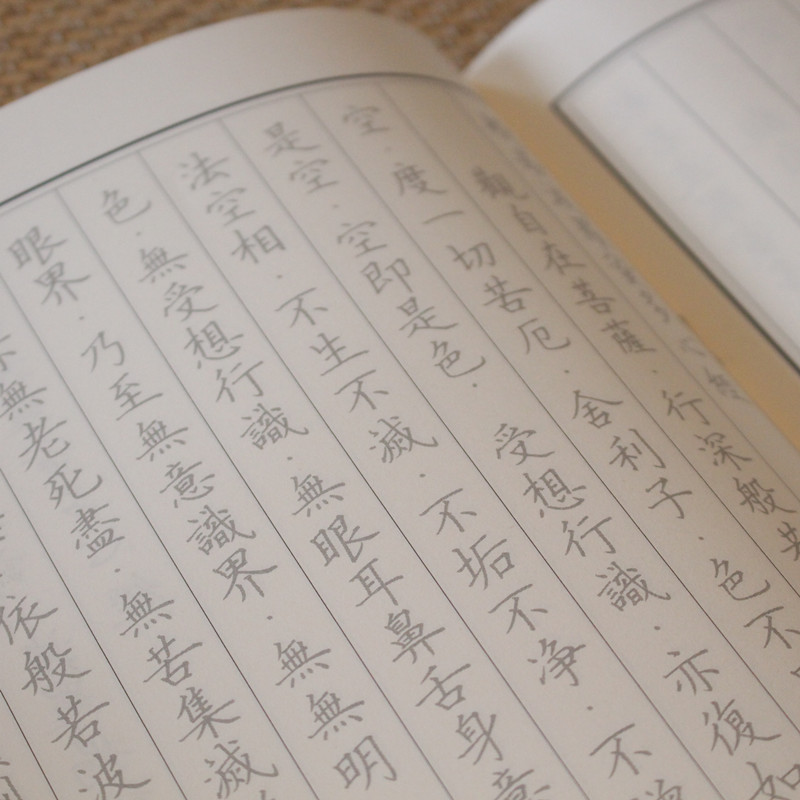 觀自在菩薩．行深般若
空．度一切苦厄．舍利子．色不
是空．空即是色．受想行識．亦復如
法空相．不生不滅．不垢不净．不
色．無受想行識．無眼耳鼻舌身意
眼界．乃至無意識界．無無明
無老死盡．無苦集滅
依般若波